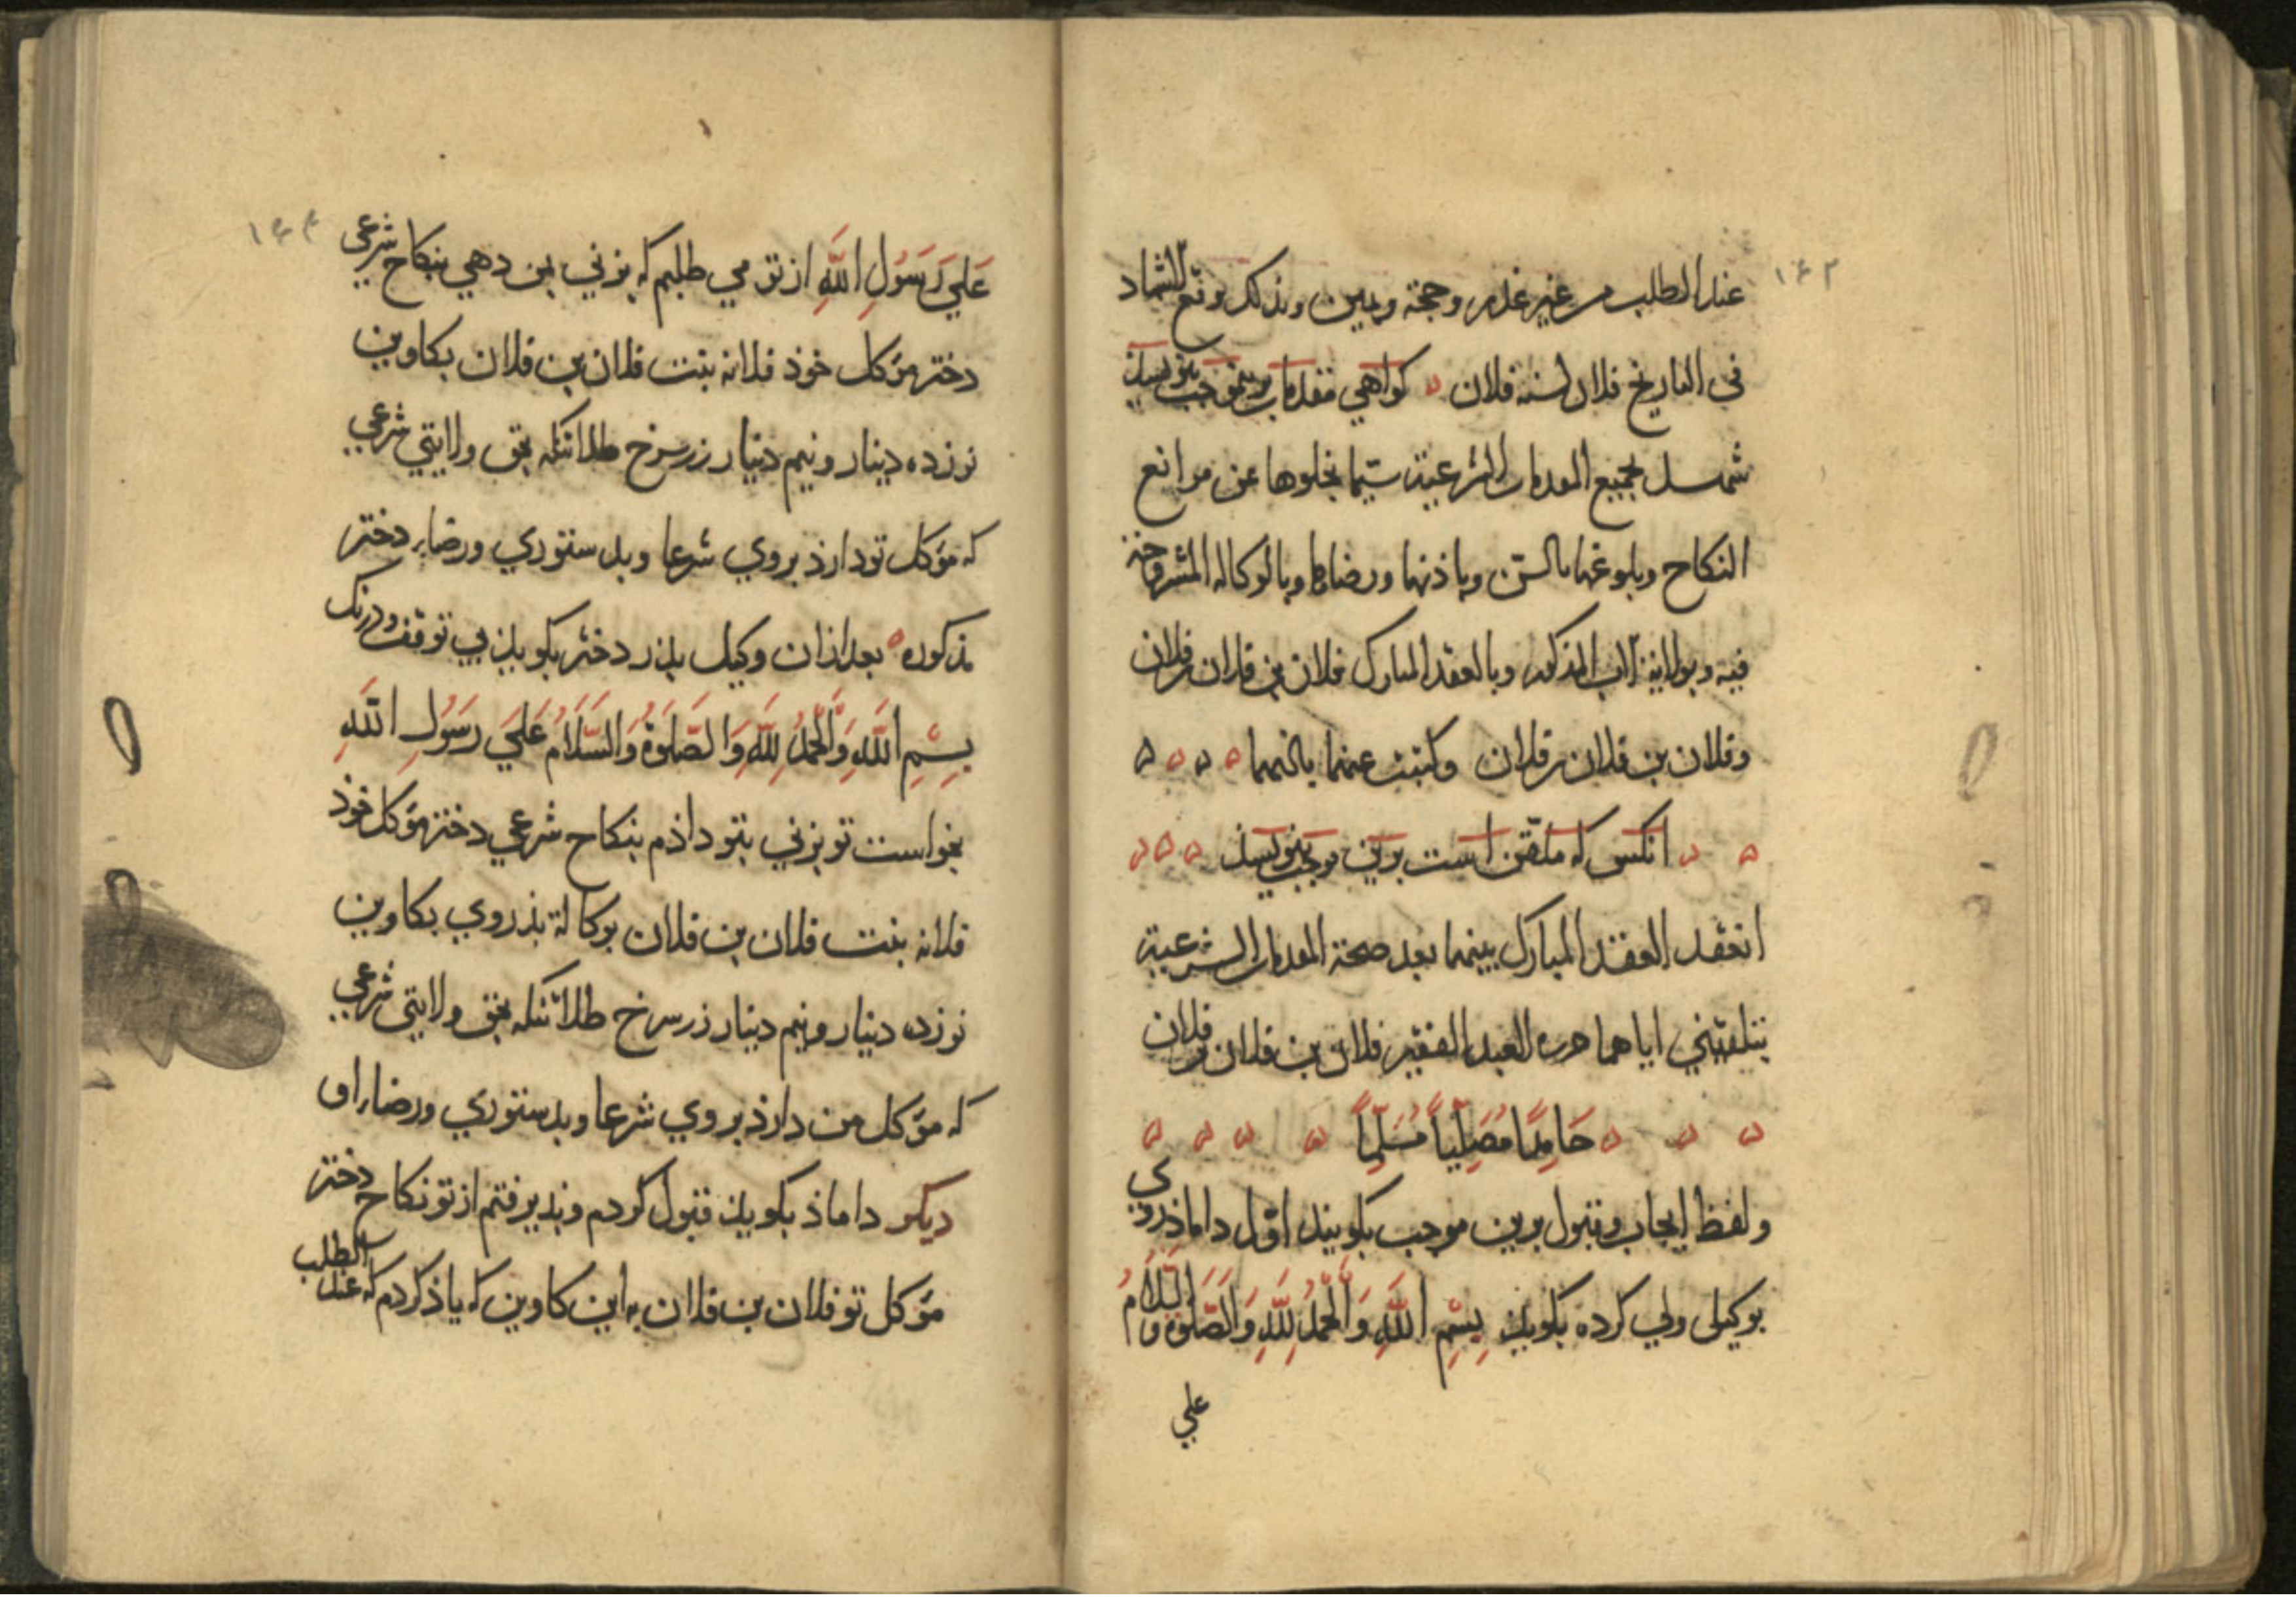 ١٤٣
عند الطلب من غير عذر وحجة ويمين وبذلك وقع الاشهاد
في التاريخ فلان لسنه فلان كواهي مقدمات برين موجب بنويسند
شهد بجميع المقدمات الشرعية سيما بخلوها عن موانع
النكاح وبلوغها بالسن وباذنها ورضاها وبالوكالة المشروحة
فيه وبولاية الاب المذكور وبالعقد المبارك فلان بن فلان بن فلان
وفلان بن فلان بن فلان وكتبت عنهما بالتماسهما
انكس كه ملقن است برين موجب بنويسند
انعقد العقد المبارك بينهما بعد صحة المقدمات الشرعية
بتلقيني اياهما حرره العبد الفقير فلان بن فلان بن فلان
حَامِدًا مُصَلِّياً مُسَلِّماً
ولفظ ايجاب وقبول برين موجب بكويند اول داماذ روي
بوكيل ولي كرده بكويد بِسْمِ اللَّهِ وَالْحَمْدُ لِلَّهِ وَالصَّلوةُ وَالسَّلَامُ
علي
١٤٤
عَلَي رَسُولِ اللَّهِ از تو مي طلبم كه بزني بمن دهي بنكاح شرعي
دختر موكل خوذ فلانه بنت فلان بن فلان بكاوين
نوزده دينار ونيم دينار زر سرخ طلا تنكه بحق ولايتي شرعي
كه موكل تو دارذ بروي شرعا وبدستوري ورضاء دختر
مذكوره بعد ازان وكيل بذر دختر بكويذ بي توقف ودرنك
بِسْمِ اللَّهِ وَالْحَمْدُ لِلَّهِ وَالصَّلوةُ وَالسَّلَامُ عَلَي رَسُولِ اللَّهِ
بخواست تو بزني بتو داذم بنكاح شرعي دختر موكل خوذ
فلانه بنت فلان بن فلان بوكالة بذر وي بكاوين
نوزده دينار ونيم دينار زر سرخ طلا تنكه بحق ولايتي شرعي
كه موكل من دارذ بروي شرعا وبدستوري ورضاء او
ديكر داماذ بكويذ قبول كردم وبذيرفتم از تو نكاح دختر
موكل تو فلان بن فلان به اين كاوين كه ياذ كردم كه عند الطلب